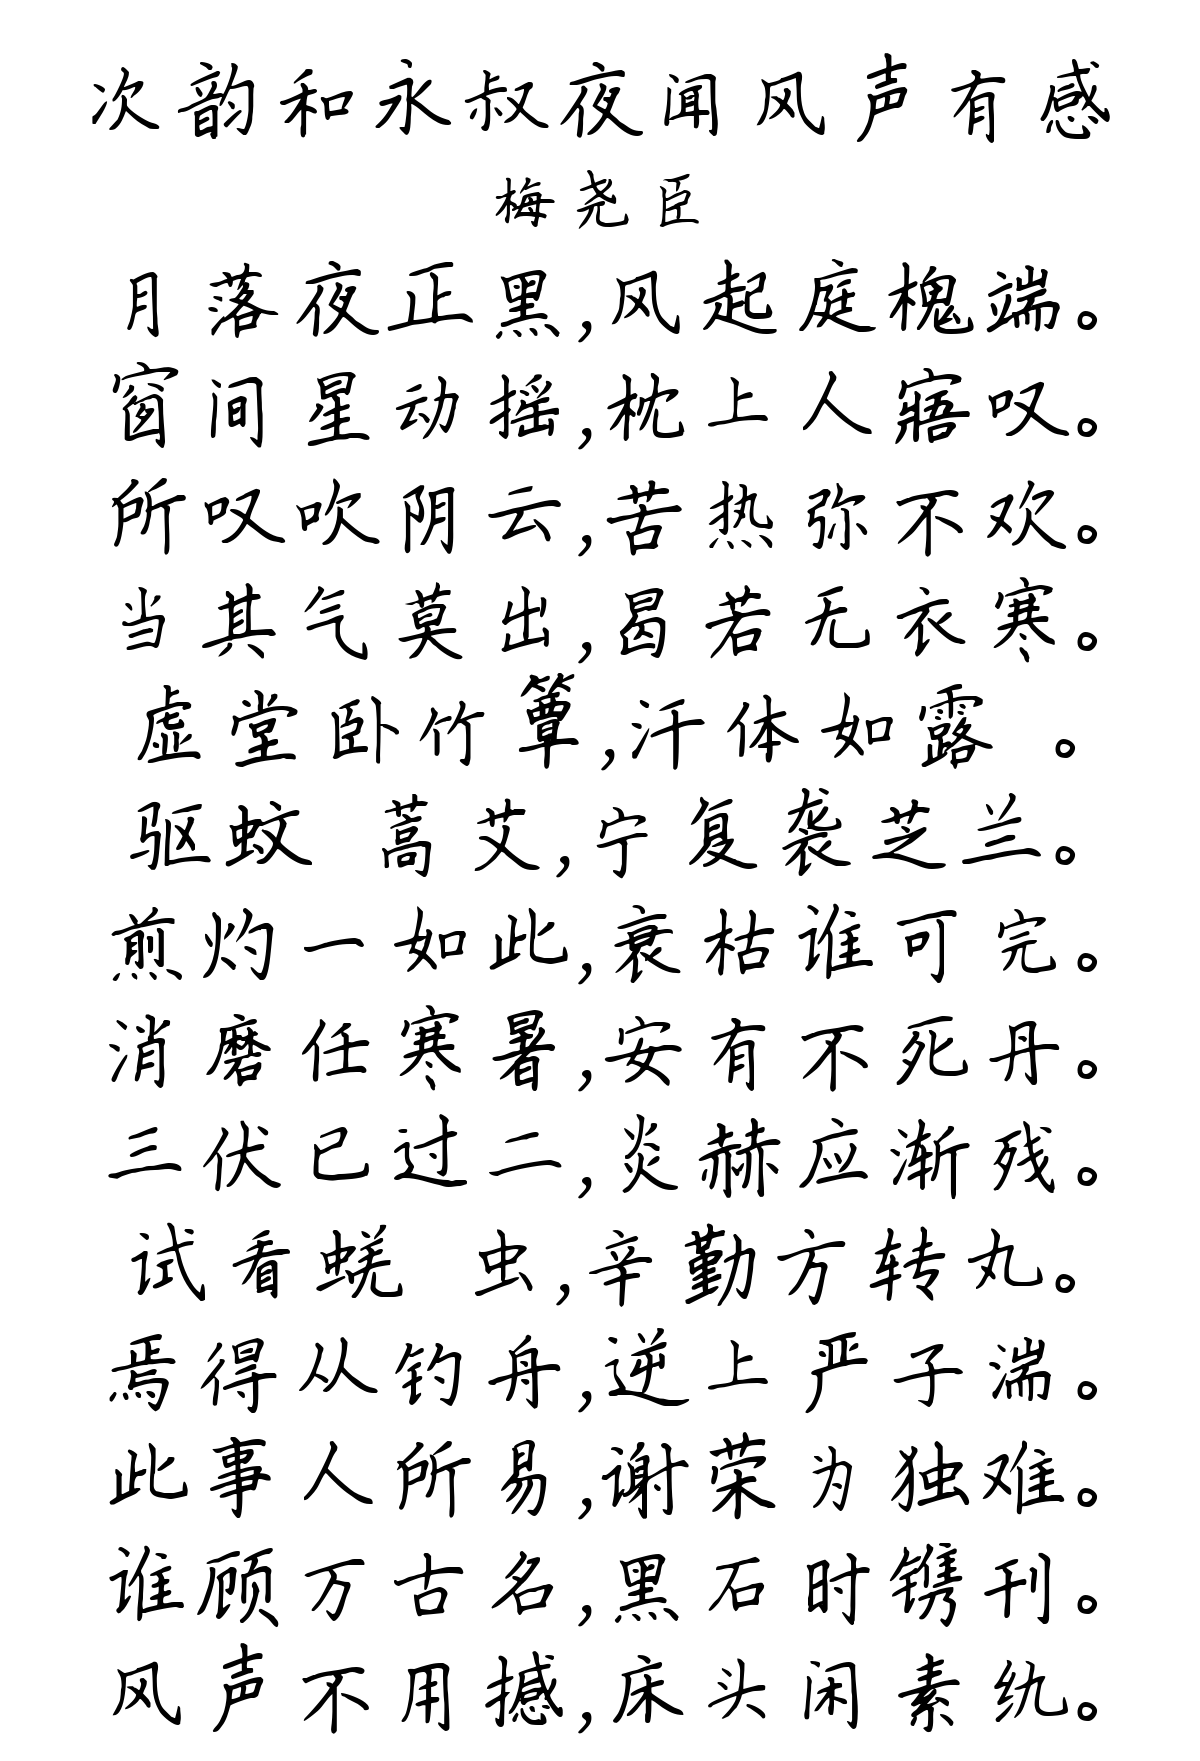 次韵和永叔夜闻风声有感
梅尧臣
月落夜正黑,风起庭槐端。
窗间星动摇,枕上人寤叹。
所叹吹阴云,苦热弥不欢。
当其气莫出,曷若无衣寒。
虚堂卧竹簟,汗体如露 。
驱蚊 蒿艾,宁复袭芝兰。
煎灼一如此,衰枯谁可完。
消磨任寒暑,安有不死丹。
三伏已过二,炎赫应渐残。
试看蜣 虫,辛勤方转丸。
焉得从钓舟,逆上严子湍。
此事人所易,谢荣为独难。
谁顾万古名,黑石时镌刊。
风声不用撼,床头闲素纨。